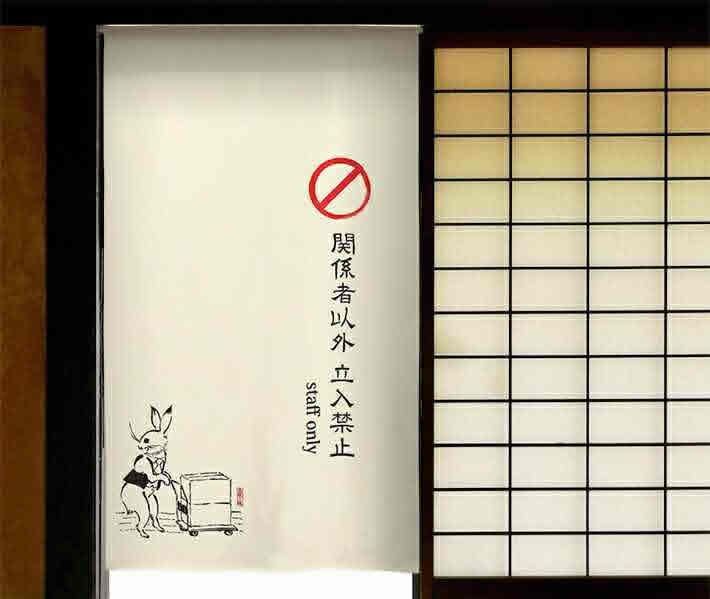 関係者以外 立入禁止
staff only